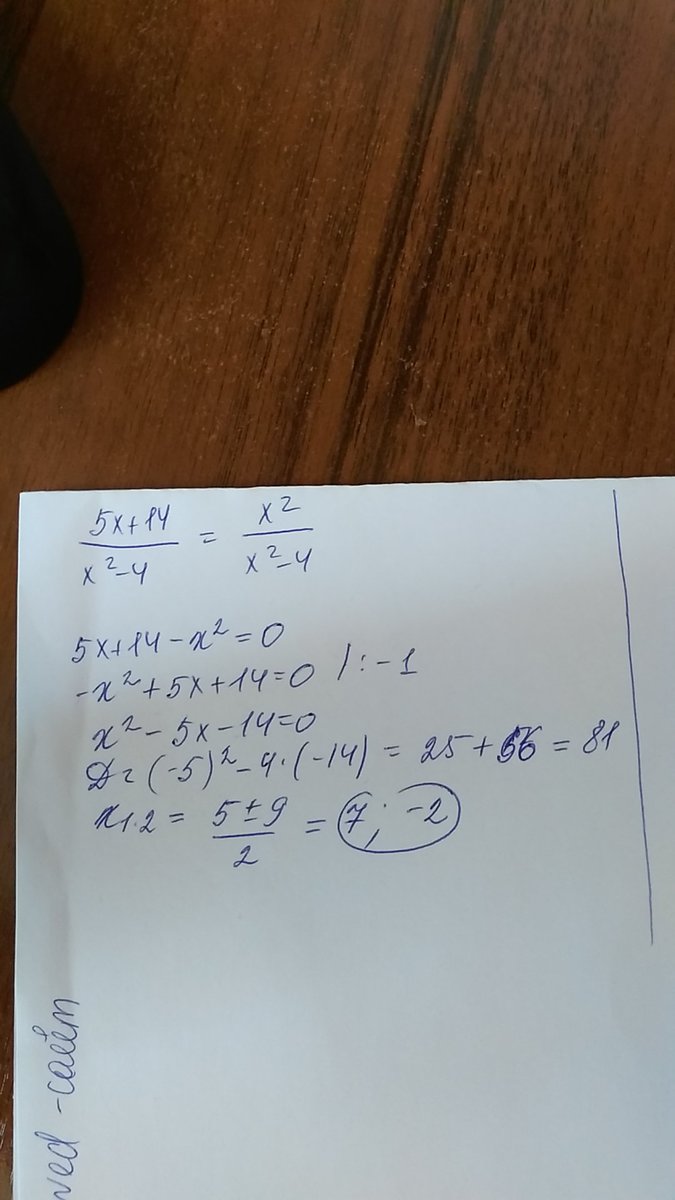 5x+14 / x²-4 = x² / x²-4
5x+14-x²=0
-x²+5x+14=0 /:-1
x²-5x-14=0
D=(-5)²-4·(-14)=25+56=81
x1.2 = 5±9 / 2 = 7; -2
-сайт